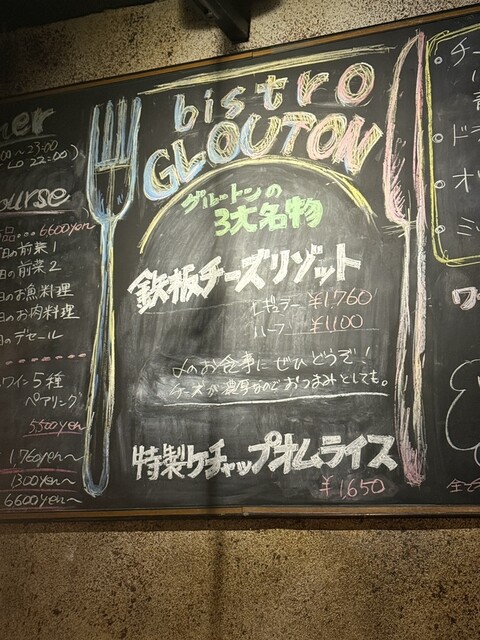 ner
00~23:00
Lo 22:00)
ourse
品...6600yen
日の前菜1
日の前菜2
日のお魚料理
日のお肉料理
日のデセール
ワイン5種
ペアリング
5,500yen
1,760yen~
1300yen~
6600yen~
bistro
GLOUTON
グルートンの
3大名物
鉄板チーズリゾット
レギュラー ¥1,760
ハーフ ¥1,100
〆のお食事にぜひどうぞ!
チーズが濃厚なのでおつまみとしても。
特製ケチャップオムライス
¥1,650
・チー
・ドラ
・オリ
・ミッ
ワ